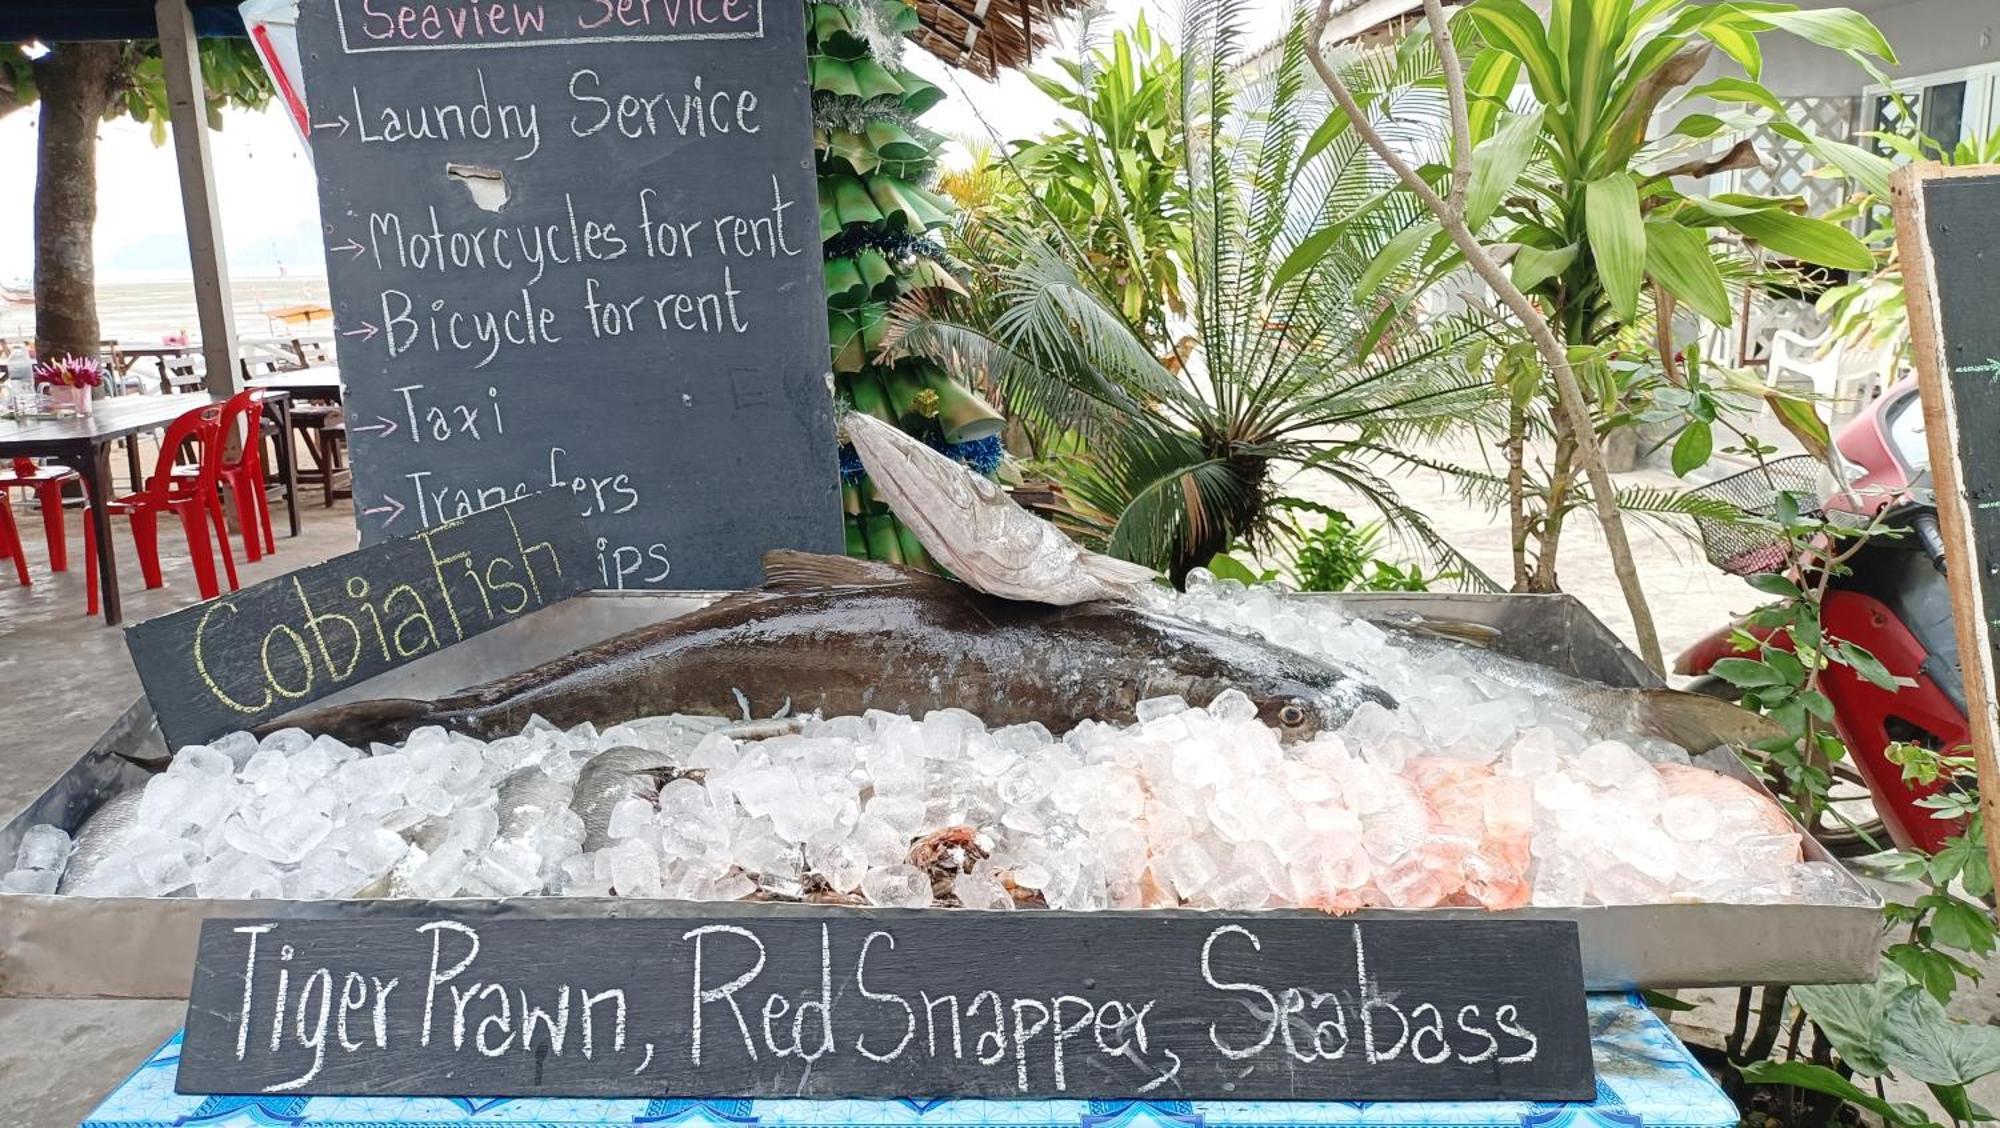 Seaview Service
→Laundry Service
→Motorcycles for rent
→Bicycle for rent
→Taxi
→Transfers
ips
Cobia Fish
Tiger Prawn, Red Snapper, Seabass